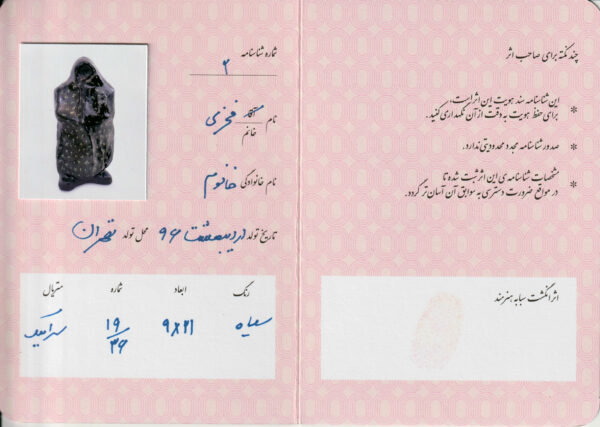 چند نکته برای صاحب اثر
* این شناسنامه سند هویت این اثر است،
برای حفظ هویت به دقت از آن نگهداری کنید.
* صدور شناسنامه مجدد محدودیتی ندارد.
* مشخصات شناسنامه‌ی این اثر ثبت شده تا
در مواقع ضرورت دسترسی به سوابق آن آسان‌تر گردد.
اثر انگشت سبابه هنرمند
شماره شناسنامه
۲
نام خانم فخری
نام خانوادگی خانوم
تاریخ تولد اردیبهشت ۹۶ محل تولد تهران
رنگ ابعاد شماره متریال
سیاه ۹×۲۱ ۱۹/۳۶ سرامیک